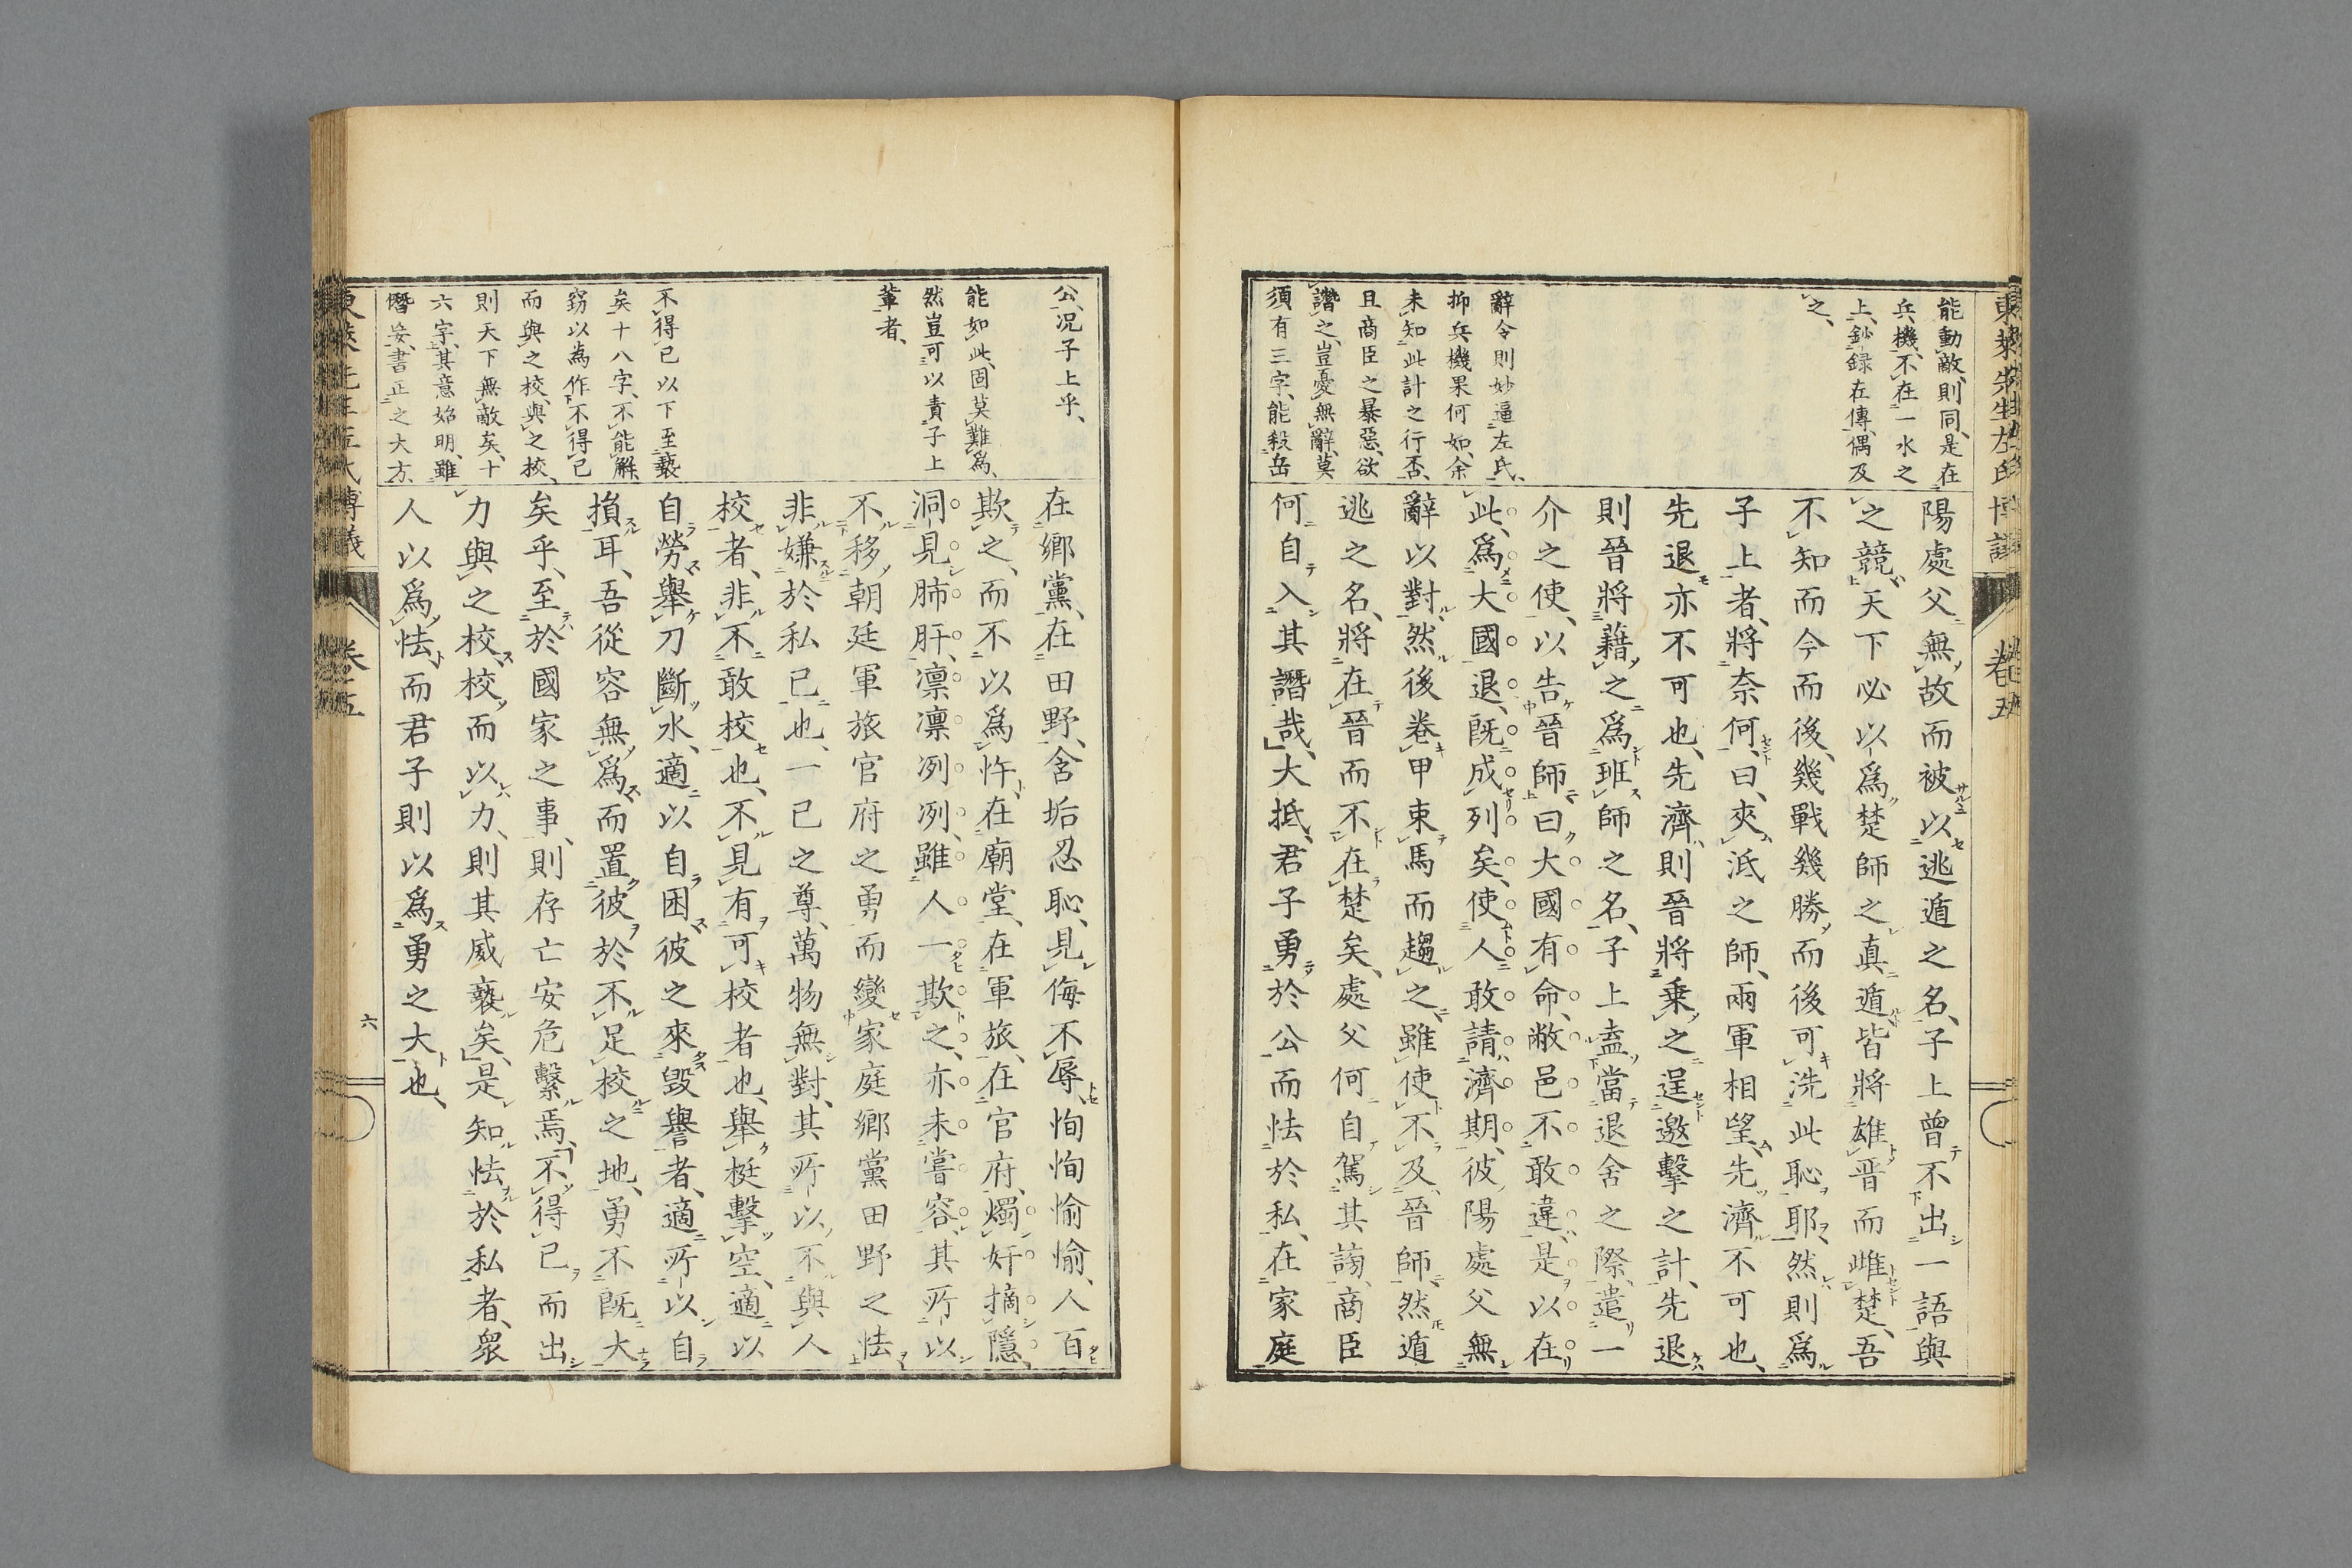 能動敵、則同、是在
兵機、不在一水之
上、鈔録在傳、偶及
之、
辭令則妙逼左氏、
抑兵機果何如、余
未知此計之行否、
且商臣之暴惡、欲
譖之、豈憂無辭、莫
須有三字、能殺岳
陽處父無故而被以逃遁之名、子上曾不出一語與
之競、天下必以爲楚師之真遁、皆將雄晉而雌楚、吾
不知而今而後、幾戰幾勝而後可洗此恥耶、然則爲
子上者、將奈何、曰、夾泜之師、兩軍相望、先濟不可也、
先退亦不可也、先濟、則晉將乘之、逞邀擊之計、先退
則晉將藉之爲班師之名、子上盍當退舍之際、遣一
介之使、以告晉師曰、大國有命、敝邑不敢違、是以在
此、爲大國退、既成列矣、使人敢請濟期、彼陽處父無
辭以對、然後卷甲束馬而趨之、雖使不及晉師、然遁
逃之名、將在晉而不在楚矣、處父何自駕其謗、商臣
何自入其譖哉、大抵、君子勇於公而怯於私、在家庭
東萊先生左氏博議
卷五
公、況子上乎、
能如此、固莫難爲、
然豈可以責子上
輩者、
不得已以下至褻
矣十八字、不能解、
窃以為作不得已
而與之校、與之校、
則天下無敵矣、十
六字、其意始明、雖
僭妄、書正之大方、
在鄉黨、在田野、含垢忍恥、見侮不辱、恂恂愉愉、人百
欺之、而不以爲忤、在廟堂、在軍旅、在官府、燭奸摘隱、
洞見肺肝、凛凛冽冽、雖人一欺之、亦未嘗容、其所以
不移朝廷軍旅官府之勇而變家庭鄉黨田野之怯
非嫌於私已也、一已之尊、萬物無對、其所以不與人
校者、非不敢校也、不見有可校者也、舉梃擊空、適以
自勞、舉刀斷水、適以自困、彼之來毀譽者、適所以自
損耳、吾從容無爲、而置彼於不足校之地、勇不既大
矣乎、至於國家之事、則存亡安危繫焉、不得已而出
力與之校、校而以力、則其威褻矣、是知怯於私者、衆
人以爲怯、而君子則以爲勇之大也、
卷五
六